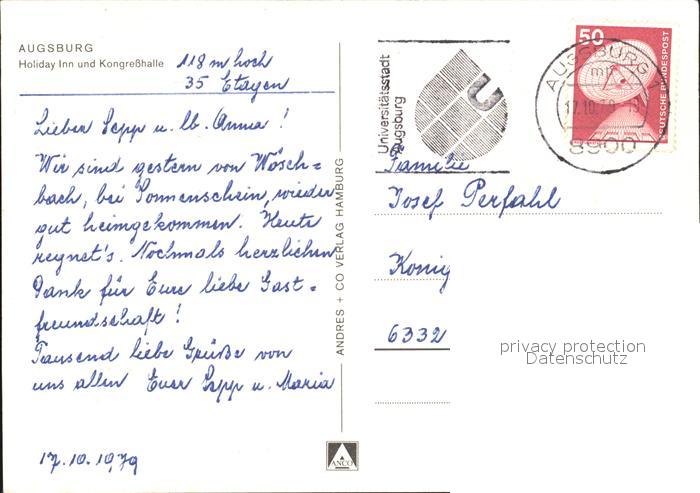 AUGSBURG
Holiday Inn und Kongreßhalle
118 m hoch
35 Etagen
Lieber Sepp u. lb. Anna!
Wir sind gestern von Wösch=
bach, bei Sonnenschein, wieder
gut heimgekommen. Heute
regnet's. Nochmals herzlichen
Dank für Eure liebe Gast=
freundschaft!
Tausend liebe Grüße von
uns allen Euer Sepp u. Maria
17.10.1979
ANDRES + CO VERLAG HAMBURG
ANCO
Universitätsstadt
Augsburg
U
AUGSBURG 1
mp
17.10.79
8900
50
DEUTSCHE BUNDESPOST
Familie
Josef Perfahl
König
6332
privacy protection
Datenschutz